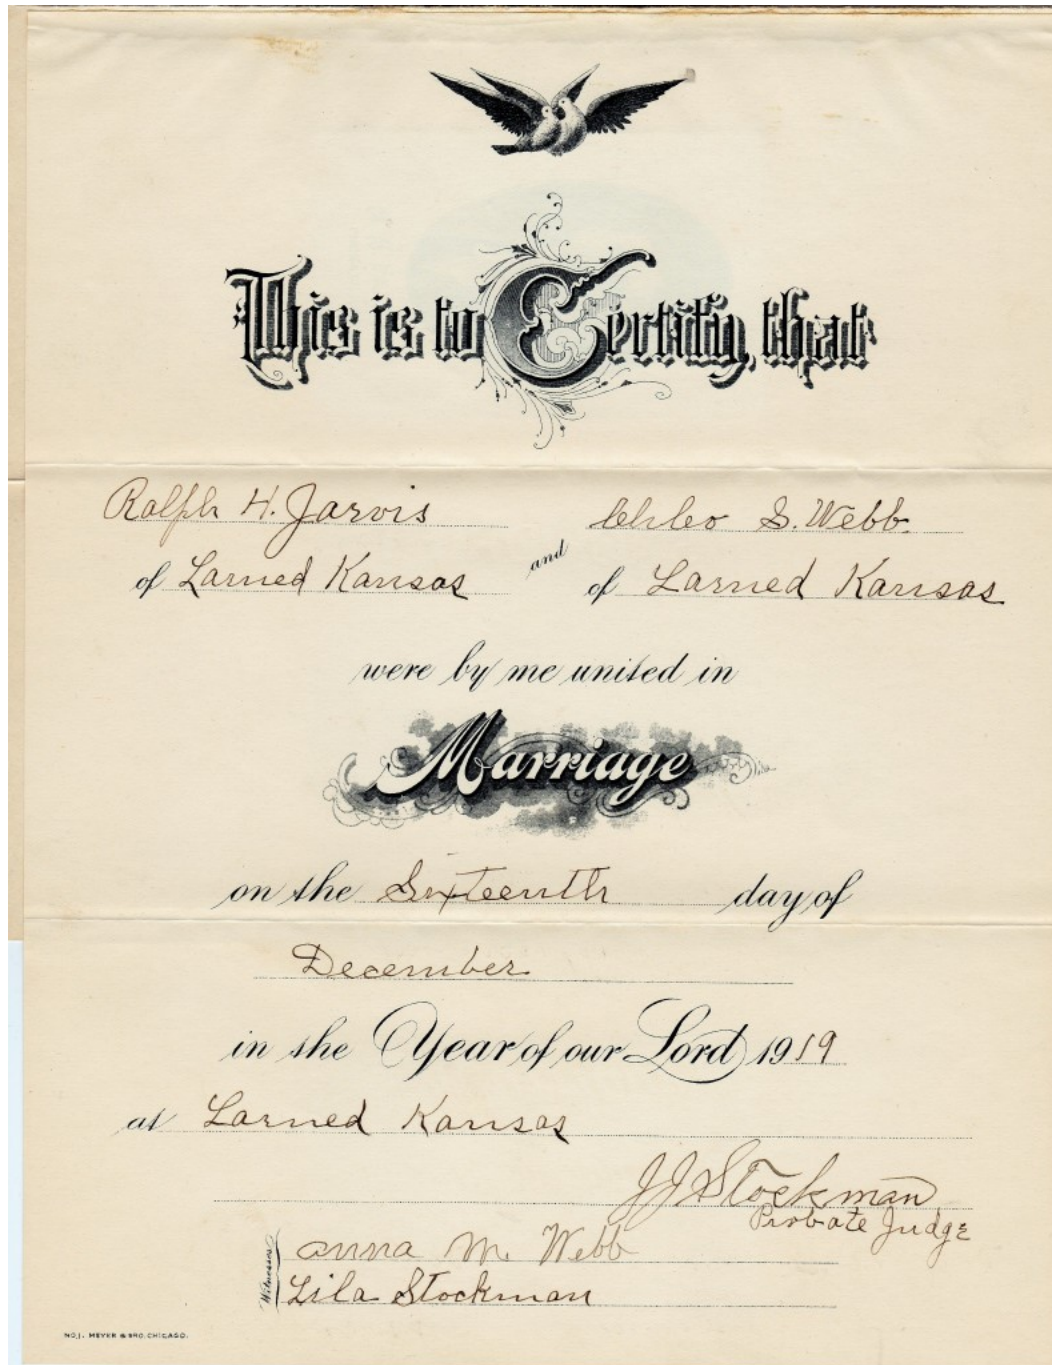 This is to Certify, that
Ralph H. Jarvis
of Larned Kansas
and
S. Webb
of Larned Kansas
were by me united in
Marriage
on the Sixteenth day of
December
in the Year of our Lord 1919
at Larned Kansas
J J Stockman
Probate Judge
Witnesses
Anna M. Webb
Lila Stockman
NO.1. MEYER & BRO. CHICAGO.